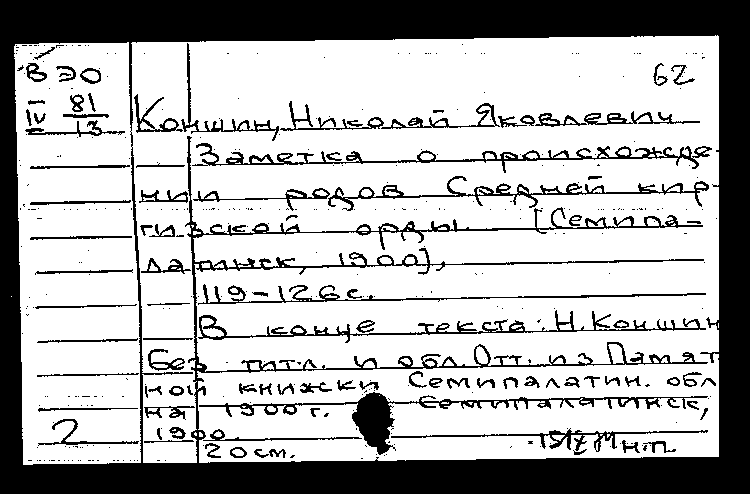 В ЭО
62
IV 81/13
Коншин, Николай Яковлевич
Заметка о происхожде-
нии родов Средней кир-
гизской орды. [Семипа-
латинск, 1900],
119-126 с.
В конце текста: Н. Коншин
Без тит.л. и обл. Отт. из Памят
ной книжки Семипалатин. обл
на 1900 г. Семипалатинск,
1900.
2
20 см.
н.п.